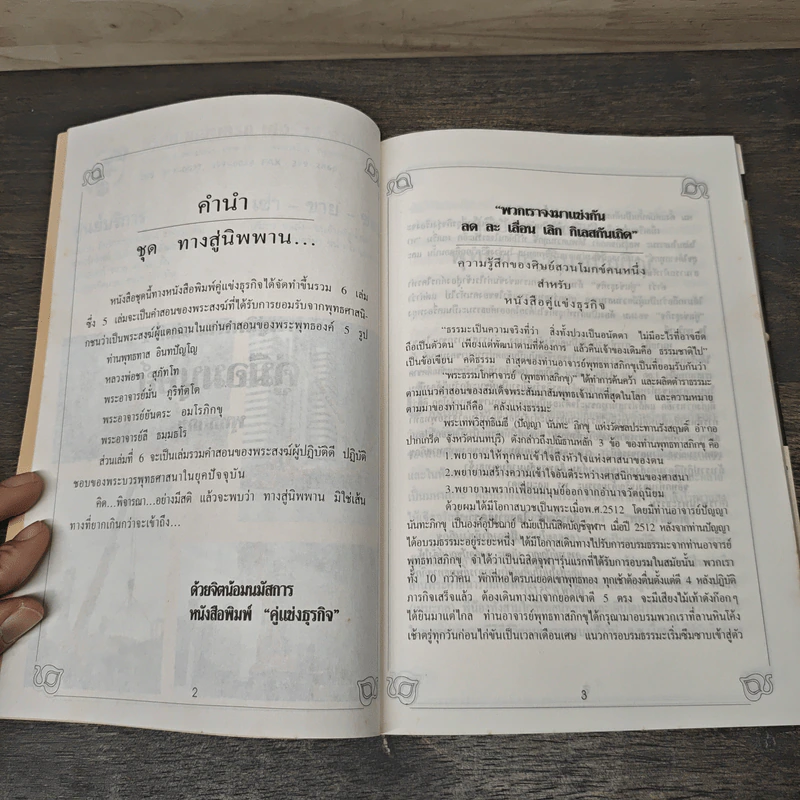 คำนำ
ชุด ทางสู่นิพพาน...
หนังสือชุดนี้ทางหนังสือพิมพ์คู่แข่งธุรกิจได้จัดทำขึ้นรวม 6 เล่ม
ซึ่ง 5 เล่มจะเป็นคำสอนของพระสงฆ์ที่ได้รับการยอมรับจากพุทธศาสนิ-
กชนว่าเป็นพระสงฆ์ผู้แตกฉานในแก่นคำสอนของพระพุทธองค์ 5 รูป
ท่านพุทธทาส อินทปัญโญ
หลวงพ่อชา สุภัทโท
พระอาจารย์มั่น ภูริทัตโต
พระอาจารย์ยันตระ อมโรภิกขุ
พระอาจารย์ลี ธมมธโร
ส่วนเล่มที่ 6 จะเป็นเล่มรวมคำสอนของพระสงฆ์ผู้ปฏิบัติดี ปฏิบัติ
ชอบของพระบวรพุทธศาสนาในยุคปัจจุบัน
คิด...พิจารณา...อย่างมีสติ แล้วจะพบว่า ทางสู่นิพพาน มิใช่เส้น
ทางที่ยากเกินกว่าจะเข้าถึง...
ด้วยจิตน้อมนมัสการ
หนังสือพิมพ์ "คู่แข่งธุรกิจ"
2
"พวกเราจงมาแข่งกัน
ลด ละ เลื่อน เลิก กิเลสกันเถิด"
ความรู้สึกของศิษย์สวนโมกข์คนหนึ่ง
สำหรับ
หนังสือคู่แข่งธุรกิจ
"ธรรมะเป็นความจริงที่ว่า สิ่งทั้งปวงเป็นอนัตตา ไม่มีอะไรที่อาจยึด
ถือเป็นตัวตน เพียงแต่พัฒนาตามที่ต้องการ แล้วคืนเจ้าของเดิมคือ ธรรมชาติไป"
เป็นข้อเขียน คติธรรม ล่าสุดของท่านอาจารย์พุทธทาสภิกขุที่เป็นที่ยอมรับกันว่า
"พระธรรมโกศาจารย์ (พุทธทาสภิกขุ)" ได้ทำการค้นคว้า และผลิตตำราธรรมะ
ตามแนวคำสอนของสมเด็จพระสัมมาสัมพุทธเจ้ามากที่สุดในโลก และความหมาย
ตามมาของท่านก็คือ คลังแห่งธรรมะ
พระเทพวิสุทธิเมธี (ปัญญา นันทะ ภิกขุ แห่งวัดชลประทานรังสฤษดิ์ อำเภอ
ปากเกร็ด จังหวัดนนทบุรี) ดังกล่าวถึงปณิธานหลัก 3 ข้อ ของท่านพุทธทาสภิกขุ คือ
1.พยายามให้ทุกคนเข้าใจถึงหัวใจแห่งศาสนาของตน
2.พยายามสร้างความเข้าใจอันดีระหว่างศาสนิกชนของศาสนา
3.พยายามพรากเพื่อนมนุษย์ออกจากอำนาจวัตถุนิยม
ด้วยผมได้มีโอกาสบวชเป็นพระเมื่อพ.ศ.2512 โดยมีท่านอาจารย์ปัญญา
นันทะภิกขุ เป็นองค์อุปัชฌาย์ สมัยเป็นนิสิตบัญชีจุฬาฯ เมื่อปี 2512 หลังจากท่านปัญญา
ได้อบรมธรรมะอยู่ระยะหนึ่ง ได้มีโอกาสเดินทางไปรับการอบรมธรรมะจากท่านอาจารย์
พุทธทาสภิกขุ จำได้ว่าเป็นนิสิตจุฬาฯรุ่นแรกที่ได้รับการอบรมในสมัยนั้น พวกเรา
ทั้ง 10 กว่าคน พักที่หอไตรบนยอดเขาพุทธทอง ทุกเช้าต้องตื่นตั้งแต่ตี 4 หลังปฏิบัติ
ภารกิจเสร็จแล้ว ต้องเดินทางมาจากยอดเขาตี 5 ตรง จะมีเสียงไม้เท้าดังก๊อกๆ
ได้ยินมาแต่ไกล ท่านอาจารย์พุทธทาสภิกขุได้กรุณามาอบรมพวกเราที่ลานหินโค้ง
เช้าตรู่ทุกวันก่อนไก่ขันเป็นเวลาเดือนเศษ แนวการอบรมธรรมะเริ่มซึมซาบเข้าสู่ตัว
3